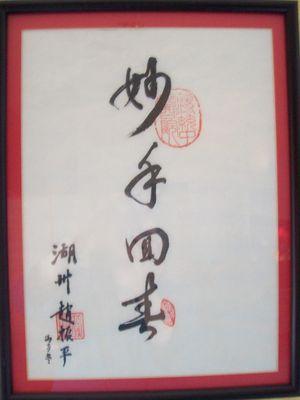 妙手回春
湖州趙振平